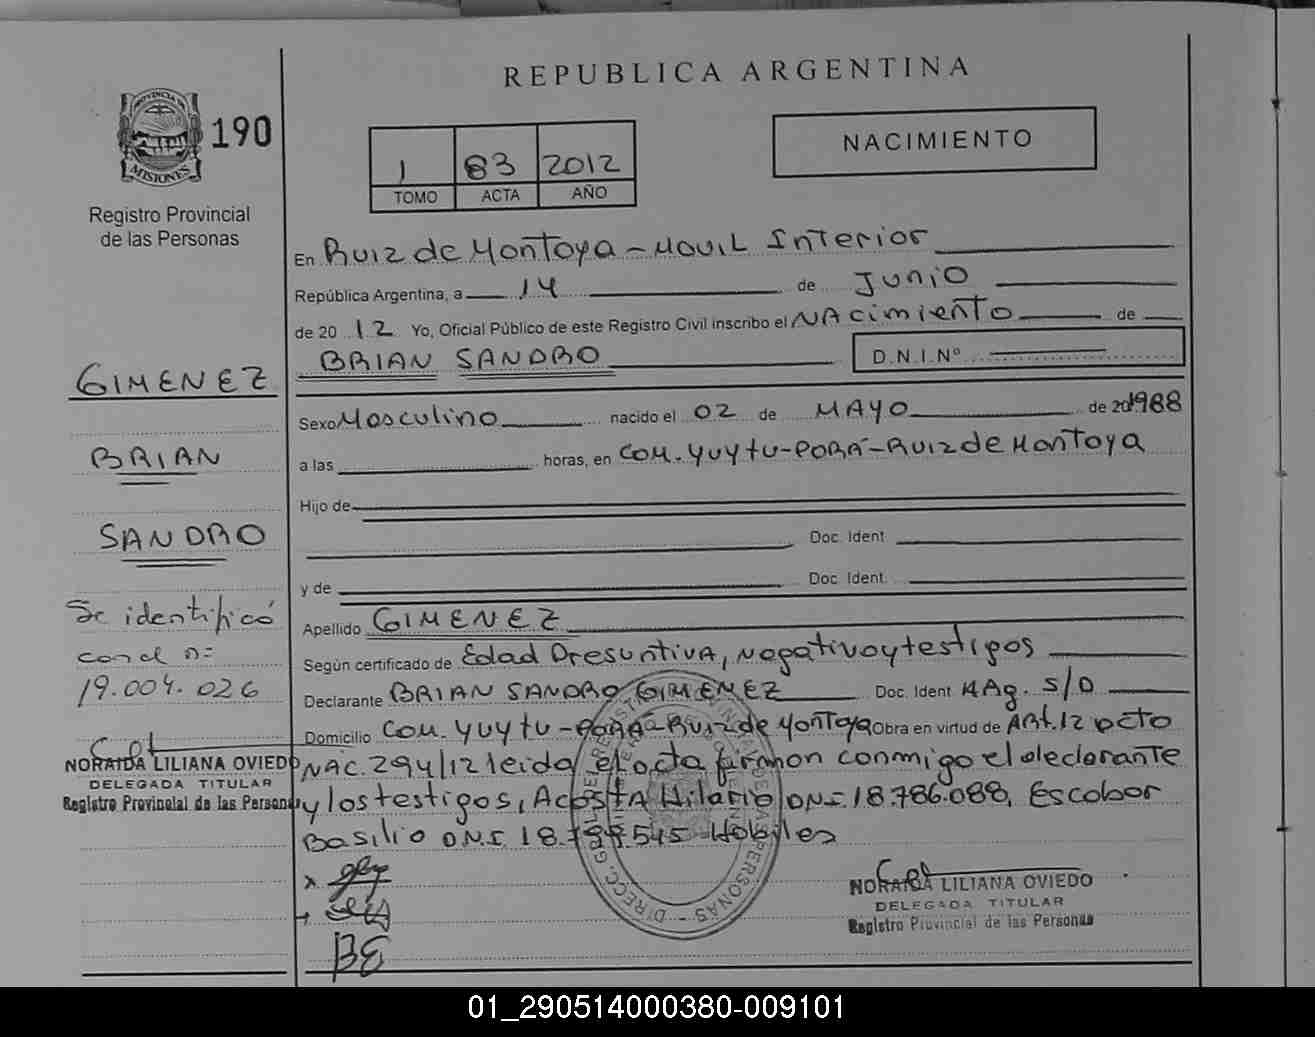 REPUBLICA ARGENTINA
PROVINCIA DE
MISIONES
190
Registro Provincial
de las Personas
1 83 2012
TOMO ACTA AÑO
NACIMIENTO
En Ruiz de Montoya - Movil Interior
República Argentina, a 14 de Junio
de 2012 Yo, Oficial Público de este Registro Civil inscribo el NAcimiento de
BRIAN SANDRO D.N.I.Nº
GIMENEZ
BRIAN
SANDRO
Se identificó
con el n=
19.004.026
NORAIDA LILIANA OVIEDO
DELEGADA TITULAR
Registro Provincial de las Personas
Sexo Masculino nacido el 02 de MAYO de 201988
a las horas, en Com. Yuytu-Porá-Ruiz de Montoya
Hijo de
Doc. Ident
y de Doc. Ident.
Apellido GIMENEZ
Según certificado de Edad Presuntiva, Negativo y testigos
Declarante BRIAN SANDRO GIMENEZ Doc. Ident MAg. S/D
Domicilio Com. Yuytu-Porá-Ruiz de Montoya Obra en virtud de Art. 12 Dcto
NAC. 294/12 leida el acta firman conmigo el declarante
y los testigos, Acosta Hilario DNI. 18.786.088, Escobar
Basilio D.N.I. 18. 545 Habiles
BE
NORAIDA LILIANA OVIEDO
DELEGADA TITULAR
Registro Provincial de las Personas
01_290514000380-009101